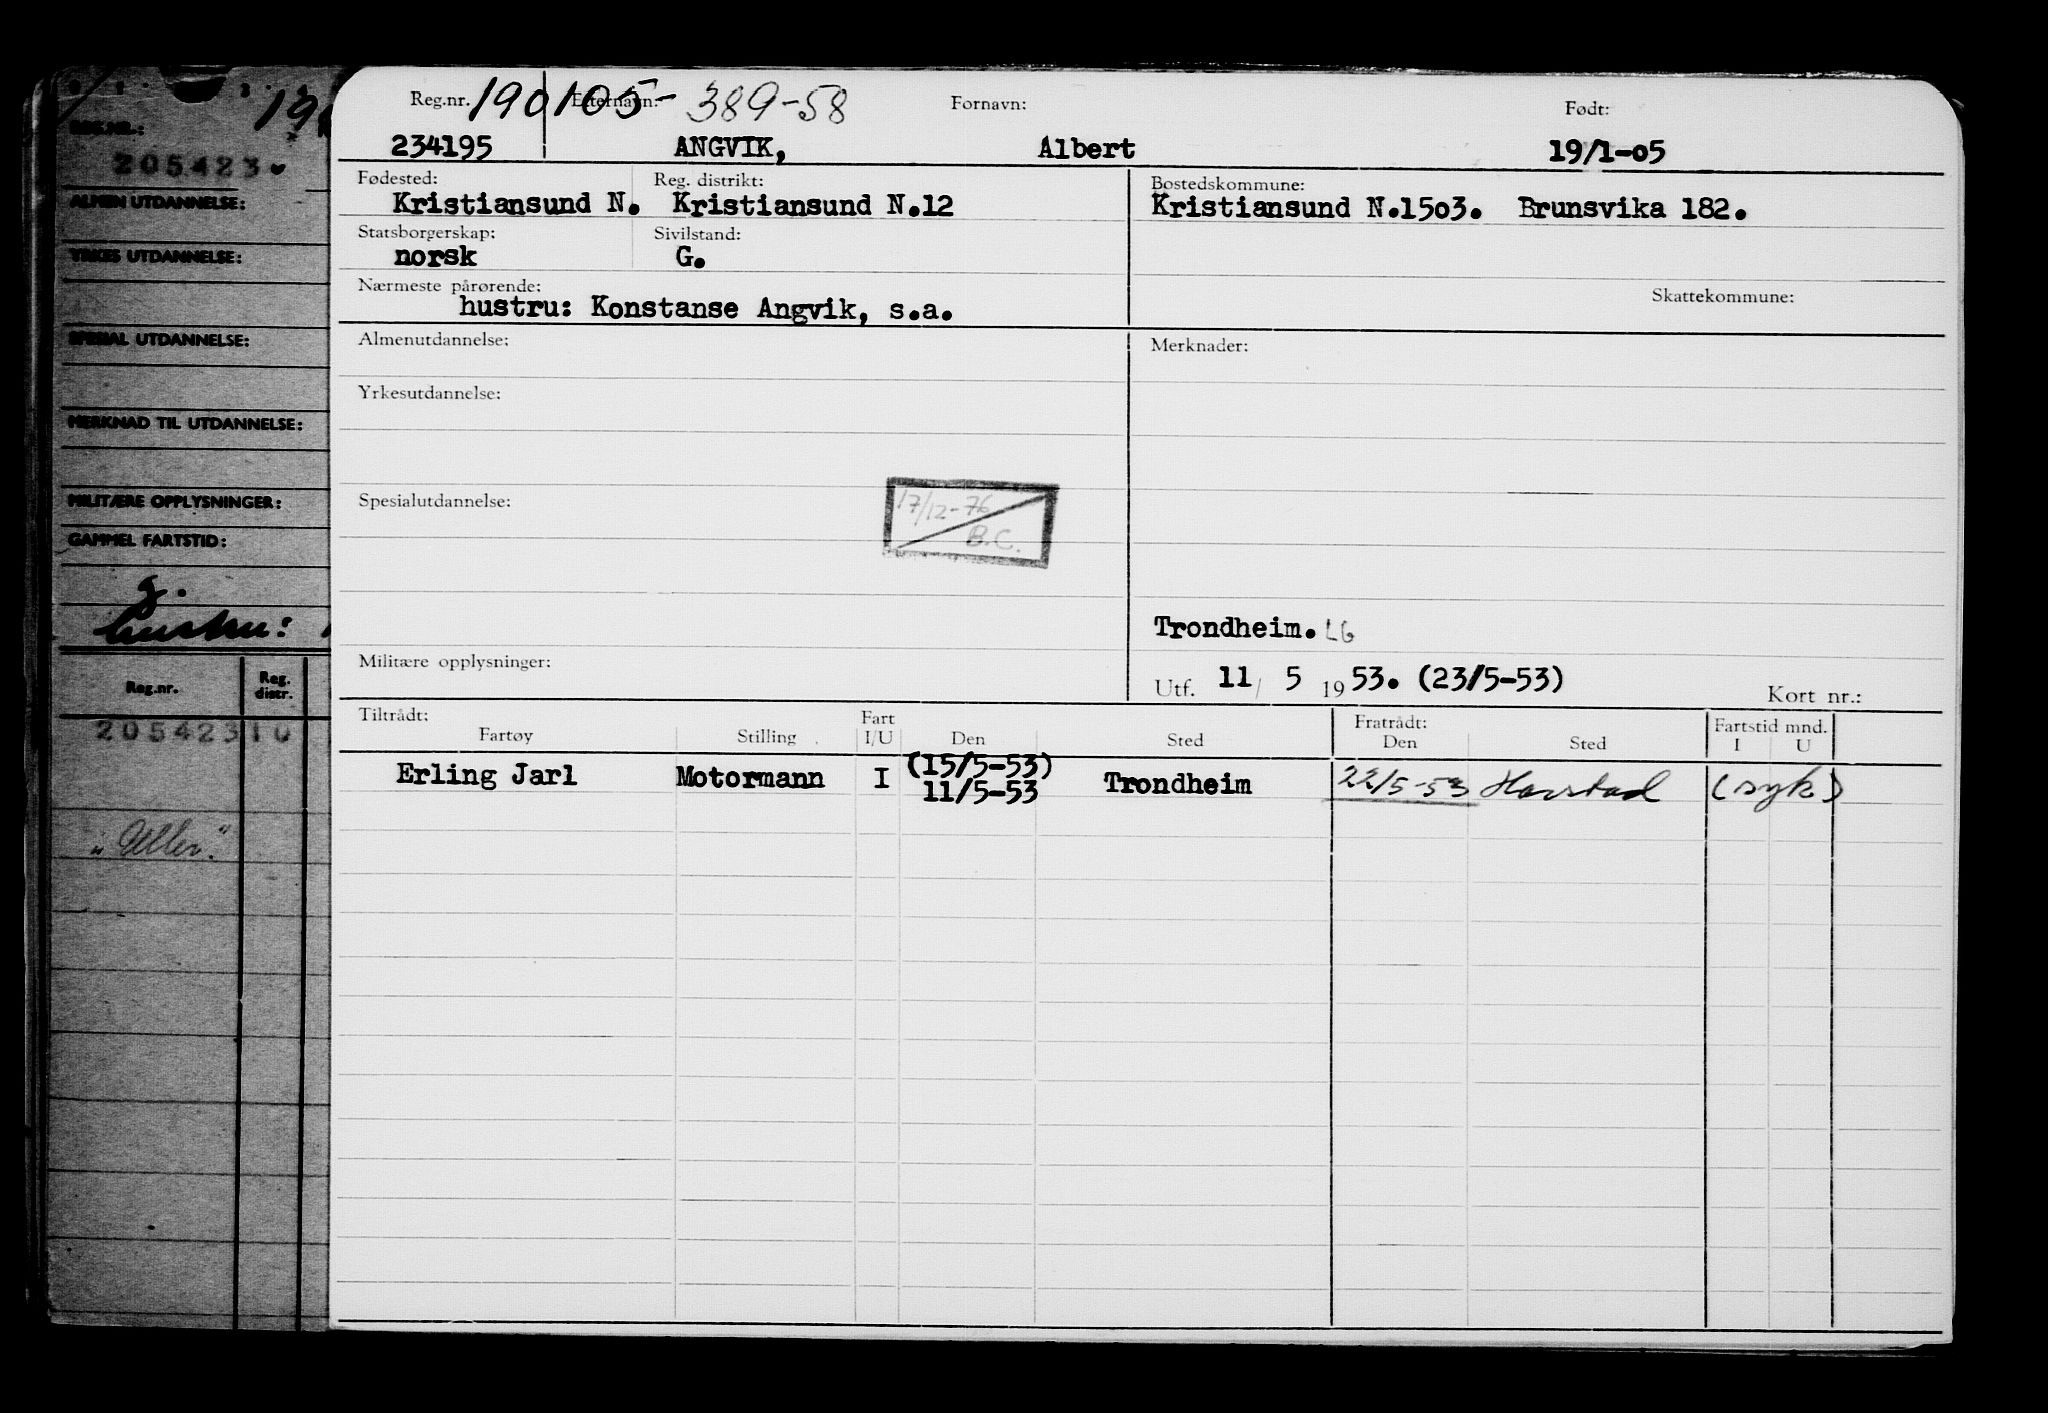 REG.NR.:
205423
ALMEN UTDANNELSE:
YRKES UTDANNELSE:
SPESIAL UTDANNELSE:
MERKNAD TIL UTDANNELSE:
MILITÆRE OPPLYSNINGER:
GAMMEL FARTSTID:
g.
hustru:
Reg.nr. Reg. distr.
205423 10
Reg.nr. 190105-389-58 Etternavn: Fornavn: Født:
234195 ANGVIK, Albert 19/1-05
Fødested: Reg. distrikt: Bostedskommune:
Kristiansund N. Kristiansund N.12 Kristiansund N.1503. Brunsvika 182.
Statsborgerskap: Sivilstand:
norsk G.
Nærmeste pårørende: Skattekommune:
hustru: Konstanse Angvik, s.a.
Almenutdannelse: Merknader:
Yrkesutdannelse:
Spesialutdannelse:
17/12-76
B.C.
Trondheim. LG
Militære opplysninger:
Utf. 11/ 5 1953. (23/5-53) Kort nr.:
Tiltrådt: Fart Fratrådt: Fartstid mnd.
Fartøy Stilling I/U Den Sted Den Sted I U
(15/5-53)
Erling Jarl Motormann I 11/5-53 Trondheim 22/5-53 Harstad (syk)